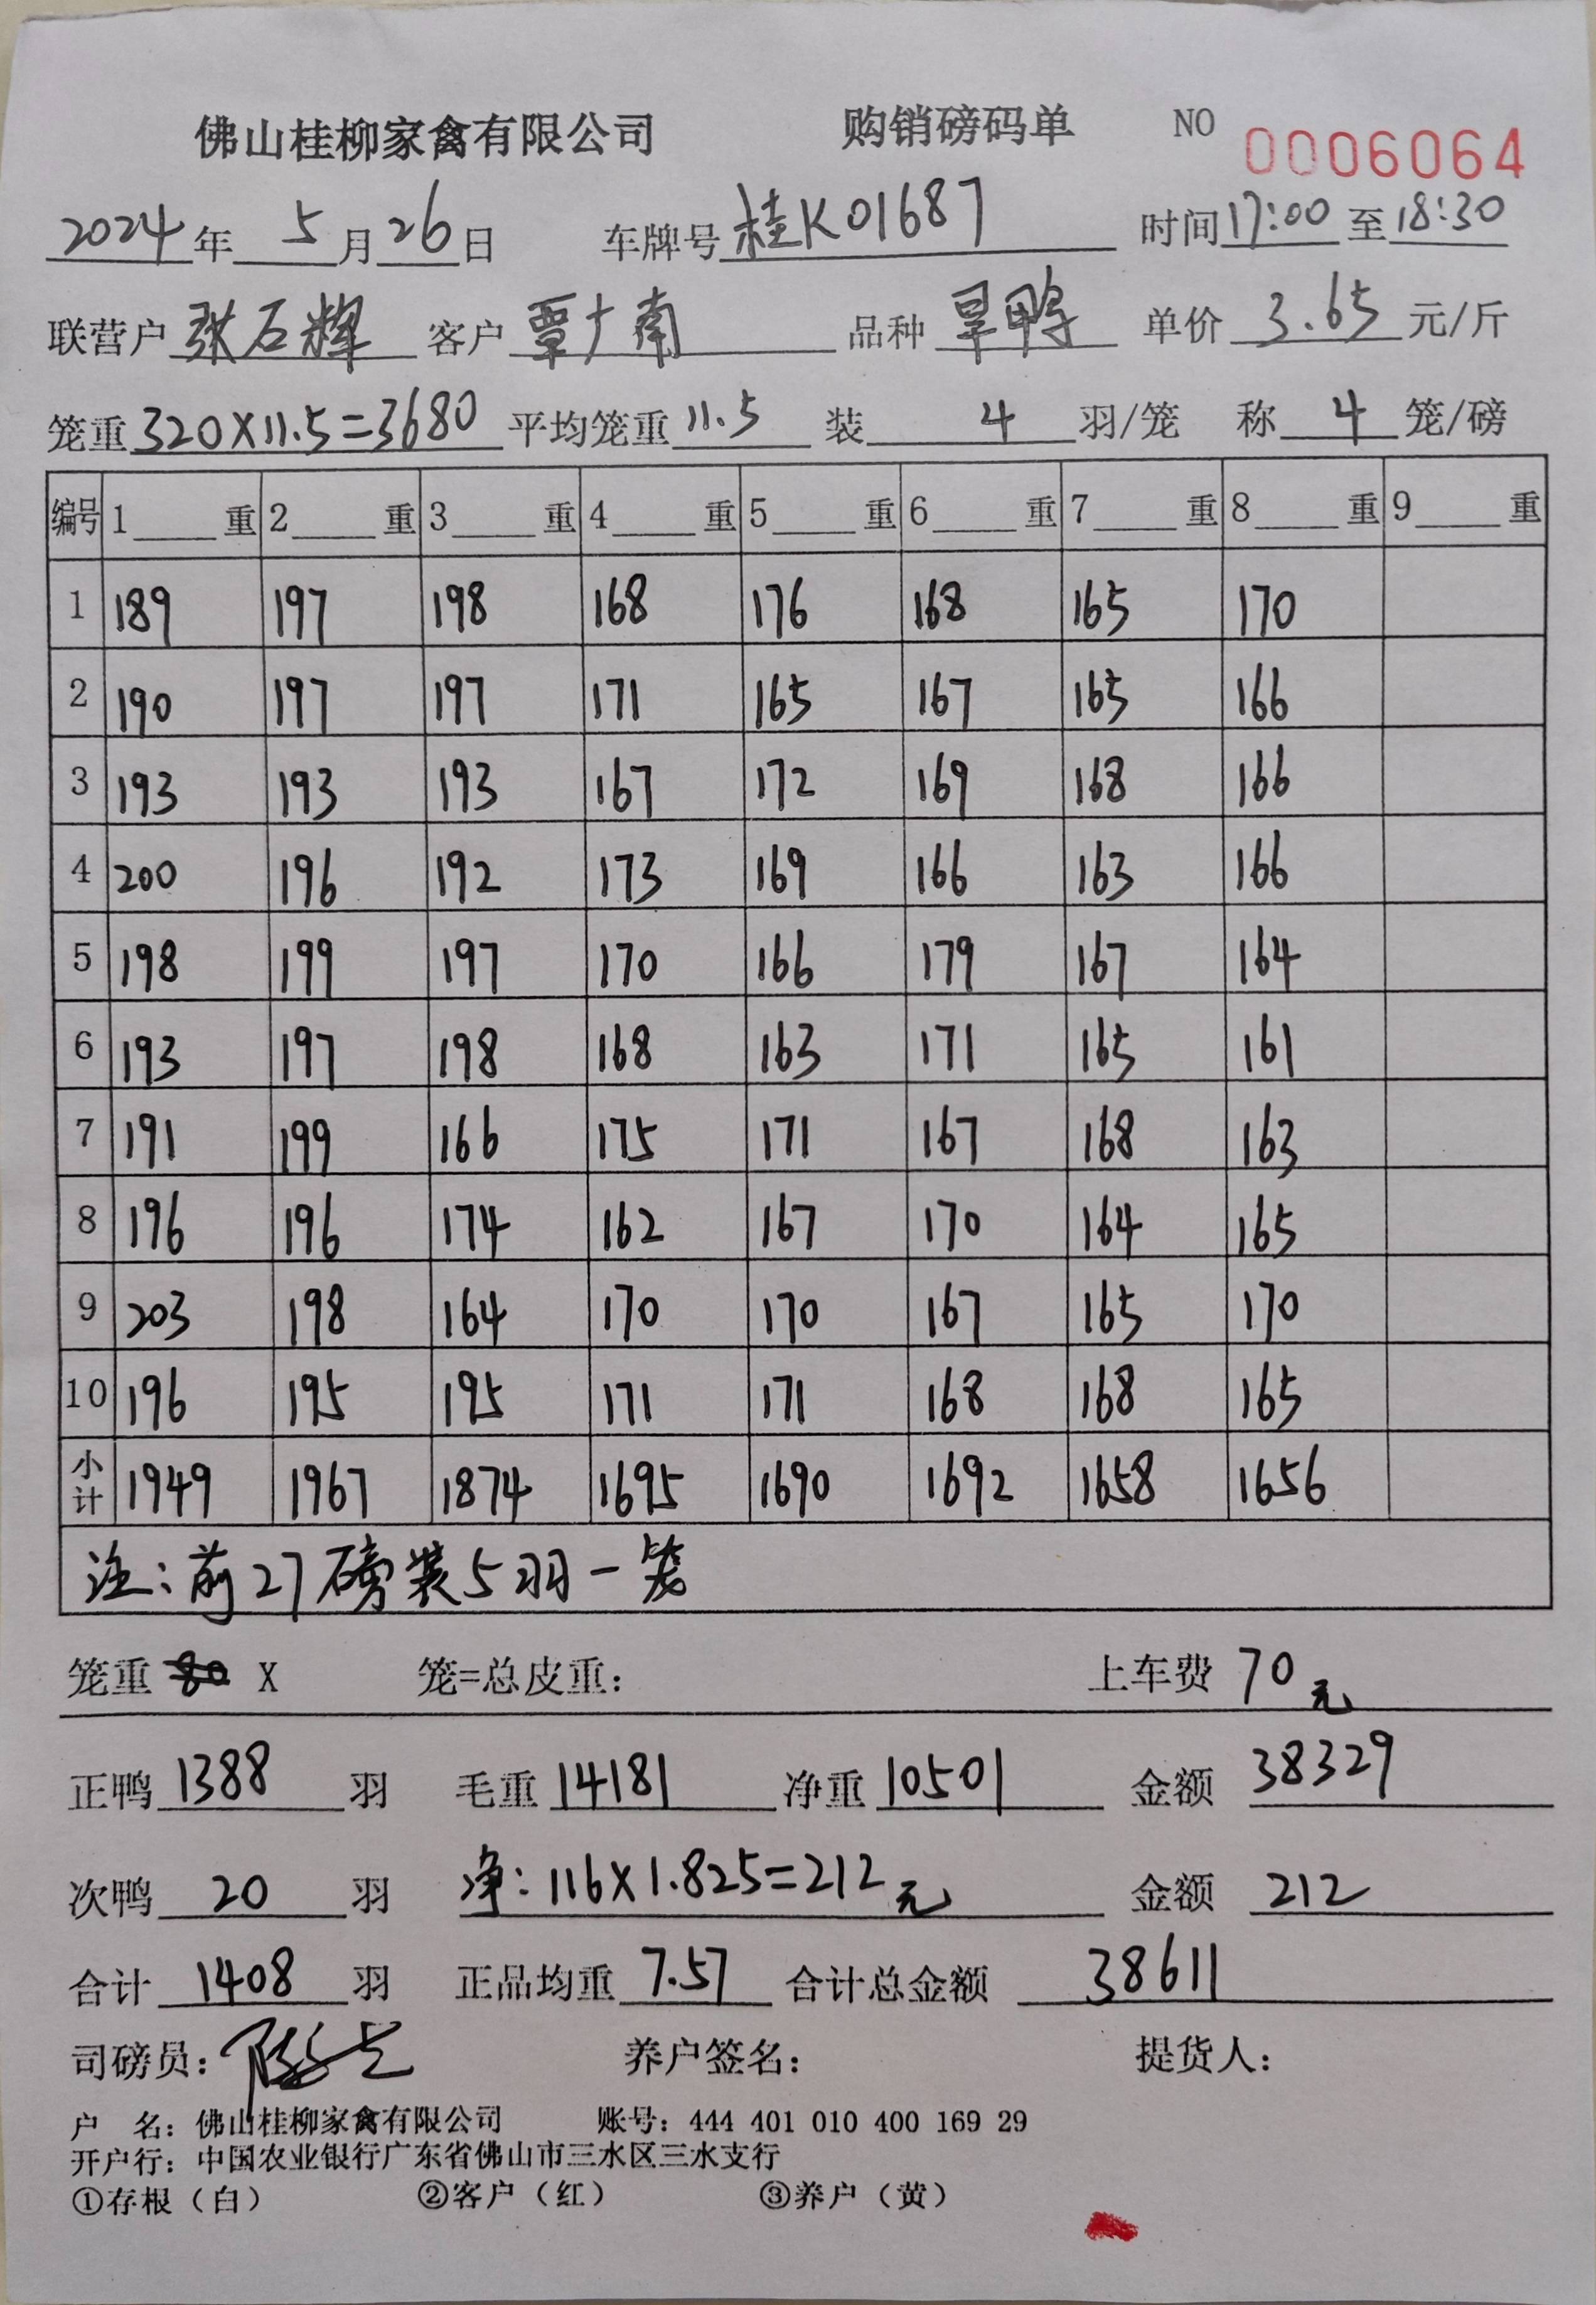 佛山桂柳家禽有限公司 购销磅码单 NO 0006064
2024年 5月26日 车牌号 桂K01687 时间17:00至18:30
联营户 张石辉 客户 覃广南 品种 旱鸭 单价 3.65 元/斤
笼重 320X11.5=3680 平均笼重 11.5 装 4 羽/笼 称 4 笼/磅
编号 1____重 2____重 3____重 4____重 5____重 6____重 7____重 8____重 9____重
1 189 197 198 168 176 168 165 170
2 190 197 197 171 165 167 165 166
3 193 193 193 167 172 169 168 166
4 200 196 192 173 169 166 163 166
5 198 199 197 170 166 179 167 164
6 193 197 198 168 163 171 165 161
7 191 199 166 175 171 167 168 163
8 196 196 174 162 167 170 164 165
9 203 198 164 170 170 167 165 170
10 196 195 195 171 171 168 168 165
小计 1949 1967 1874 1695 1690 1692 1658 1656
注:前27磅装5羽一笼
笼重 80 X 笼=总皮重: 上车费 70元
正鸭 1388 羽 毛重 14181 净重 10501 金额 38329
次鸭 20 羽 净:116X1.825=212元 金额 212
合计 1408 羽 正品均重 7.57 合计总金额 38611
司磅员: 养户签名: 提货人:
户 名: 佛山桂柳家禽有限公司 账号: 444 401 010 400 169 29
开户行: 中国农业银行广东省佛山市三水区三水支行
①存根（白） ②客户（红） ③养户（黄）